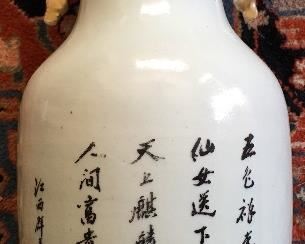 五色祥
仙女送下
天上麒麟
人间富贵
江西